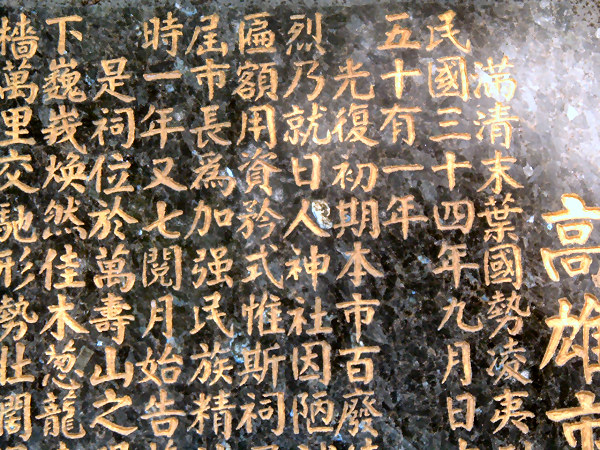 高雄市
滿清末葉國勢凌夷
民國三十四年九月日
五十有一年
光復初期本市百廢
烈乃就日人神社因陋
匾額用資矜式惟斯祠
屆市長為加强民族精
時一年又七閱月始告
是祠位於萬壽山之
下巍峩煥然佳木葱蘢
檣萬里交馳形勢壯闊